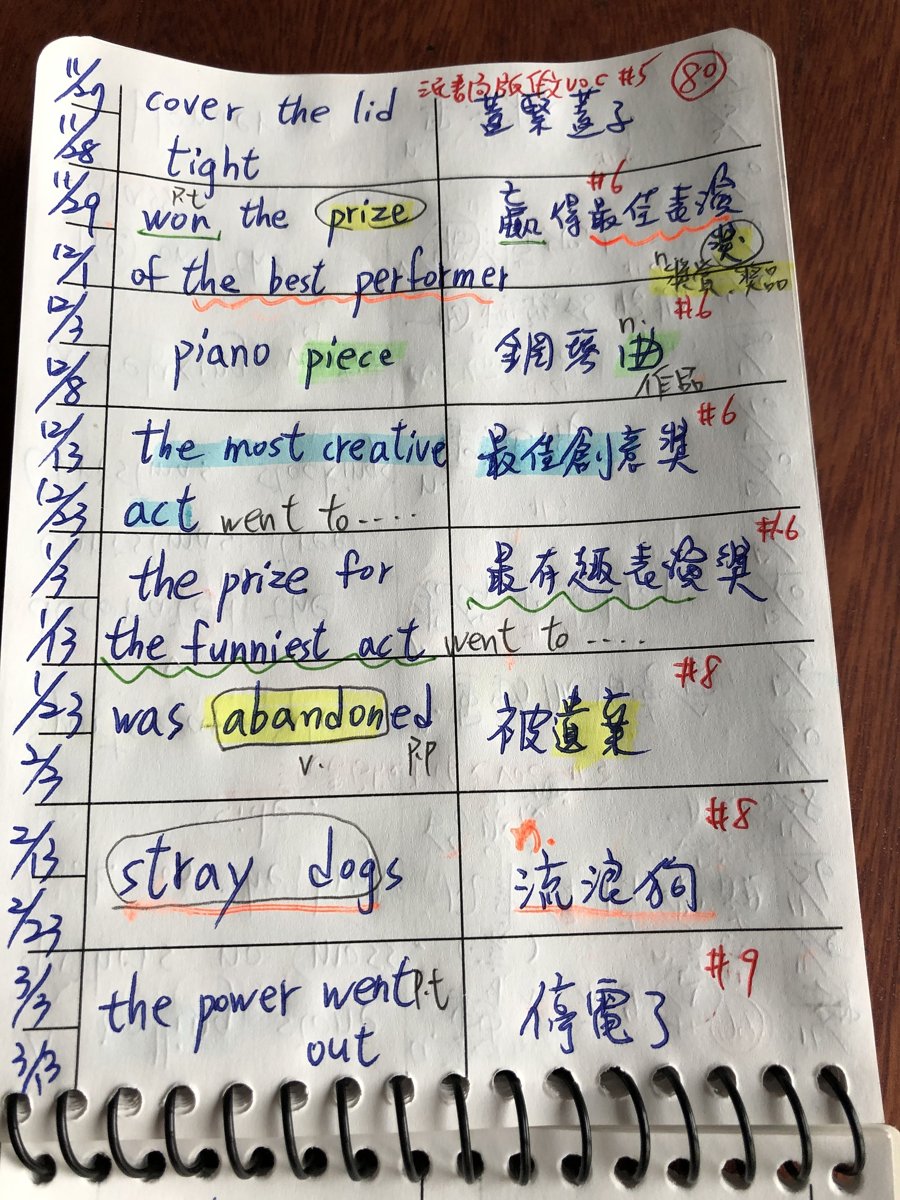 11/29 cover the lid 高版 voc #5 80
11/28 tight 蓋緊蓋子
11/29 won P.t the prize 贏得最佳表演獎 #6
12/1 of the best performer n. 獎賞、獎品
12/3 piano piece 鋼琴曲 n. #6
12/8 作品
12/13 the most creative 最佳創意獎 #6
12/23 act went to ....
1/3 the prize for 最有趣表演獎 #6
1/13 the funniest act went to ....
1/23 was abandoned 被遺棄 #8
2/3 v. P.P
2/13 stray dogs n. 流浪狗 #8
2/23
3/3 the power went P.t 停電了 #9
3/13 out